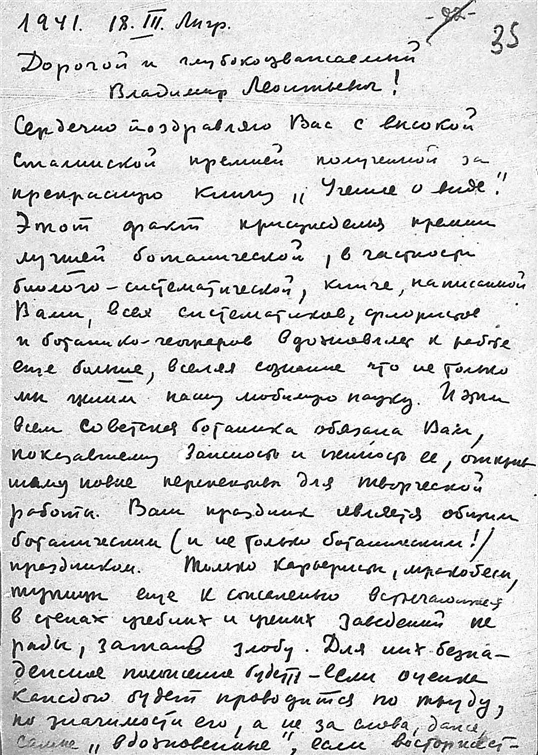 -92- 35
1941. 18.III. Лнгр.
Дорогой и глубокоуважаемый
Владимир Леонтьевич!
Сердечно поздравляю Вас с высокой
Сталинской премией полученной за
прекрасную книгу „Учение о виде".
Этот факт присуждения премии
лучшей ботанической, в частности
биолого-систематической, книге, написанной
Вами, всех систематиков, флористов
и ботанико-географов вдохновляет к работе
еще больше, вселяя сознание что не только
мы ценим нашу любимую науку. И этим
всем советская ботаника обязана Вам,
показавшему занятность и ценность ее, открыв-
шему новые перспективы для творческой
работы. Ваш праздник является общим
ботаническим (и не только ботаническим!)
праздником. Только карьеристы, мракобесы,
тупицы еще к сожалению встречающиеся
в стенах учебных и ученых заведений не
рады, затаив злобу. Для них безна-
дежное положение будет – если оценка
каждого будет проводится по труду,
по значимости его, а не за слова, даже
самые „вдохновенные", если восторжест-